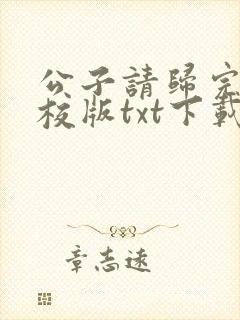 公子請歸完
校版txt下載
章志遠